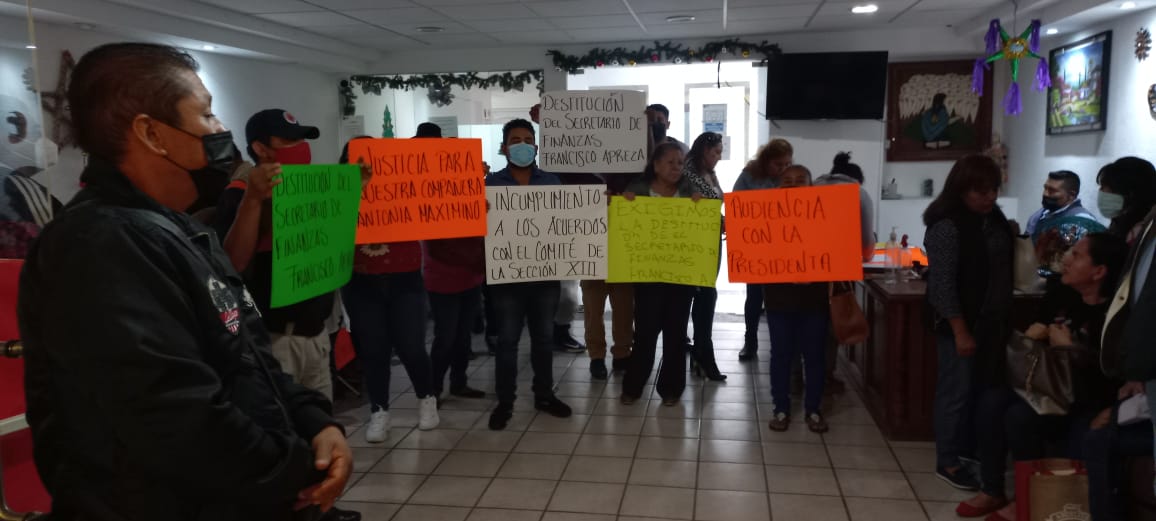 DESTITUCIÓN DEL
SECRETARIO DE
FINANZAS
FRANCISCO
JUSTICIA PARA
NUESTRA COMPAÑERA
ANTONIA MAXIMINO
DESTITUCIÓN
DEL SECRETARIO DE
FINANZAS
FRANCISCO APREZA
INCUMPLIMIENTO
A LOS ACUERDOS
CON EL COMITÉ DE
LA SECCIÓN XIII
EXIGIMOS
LA DESTITU
SECRETARIO DE
FINANZAS
FRANCISCO A
AUDIENCIA
CON LA
PRESIDENTA